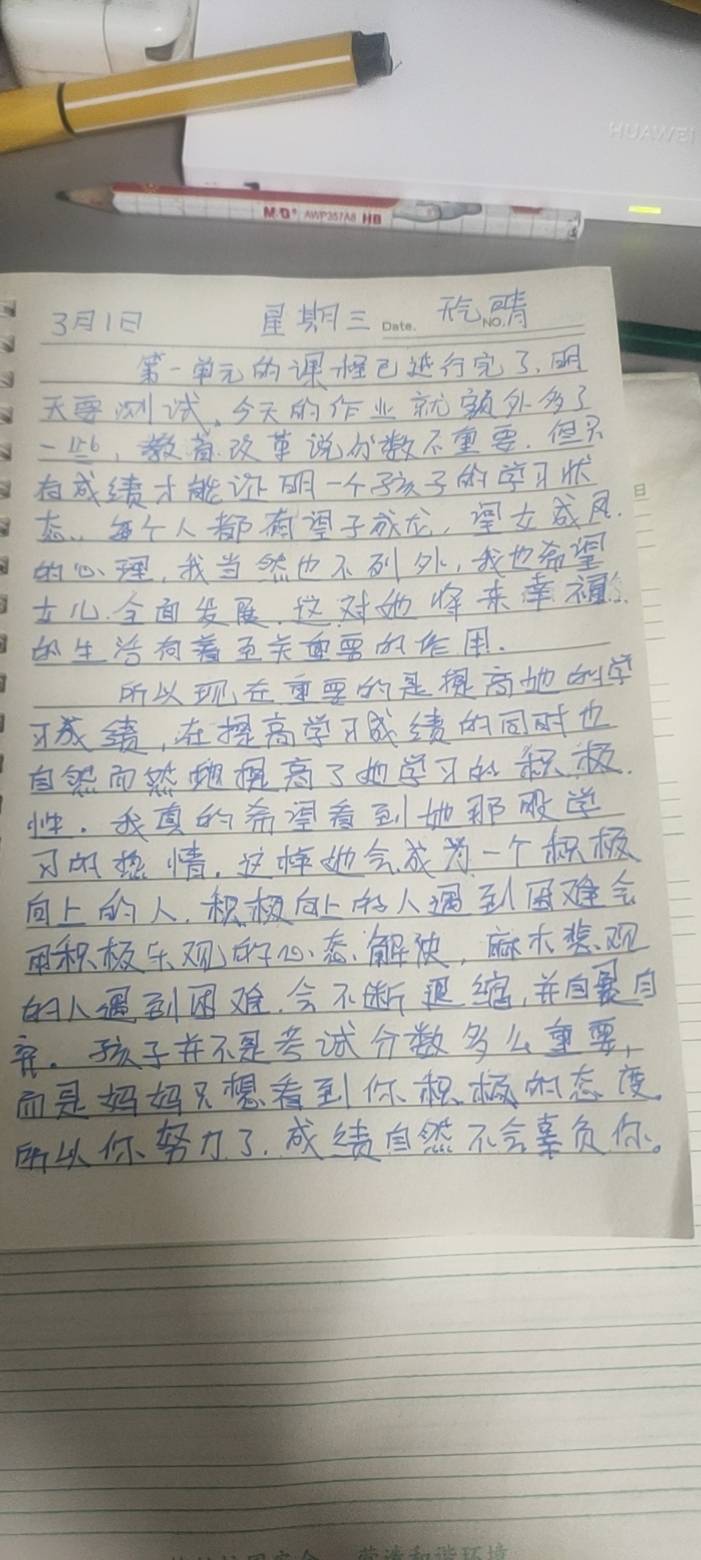 HUAWEI
M&G AWP357A8 HB
3月1日 星期三 Date. 天气晴 NO.
第一单元的课程已进行完了,明
天要测试,今天的作业就额外多了
一些,教育改革说分数不重要.但只
有成绩才能证明一个孩子的学习状
态、每个人都有望子成龙,望女成凤.
的心理,我当然也不列外,我也希望
女儿全面发展.这对她将来幸福
的生活有着至关重要的作用.
所以现在重要的是提高她的学
习成绩,在提高学习成绩的同时也
自然而然地提高了她学习的积极
性.我真的希望看到她那股学
习的热情.这样她会成为一个积极
向上的人.积极向上的人遇到困难会
用积极乐观的心态解决,麻木悲观
的人遇到困难.会不断退缩,并自暴自
弃.孩子并不是考试分数多么重要,
而是妈妈只想看到你积极的态度.
所以你努力了.成绩自然不会辜负你。
日
营造和谐环境